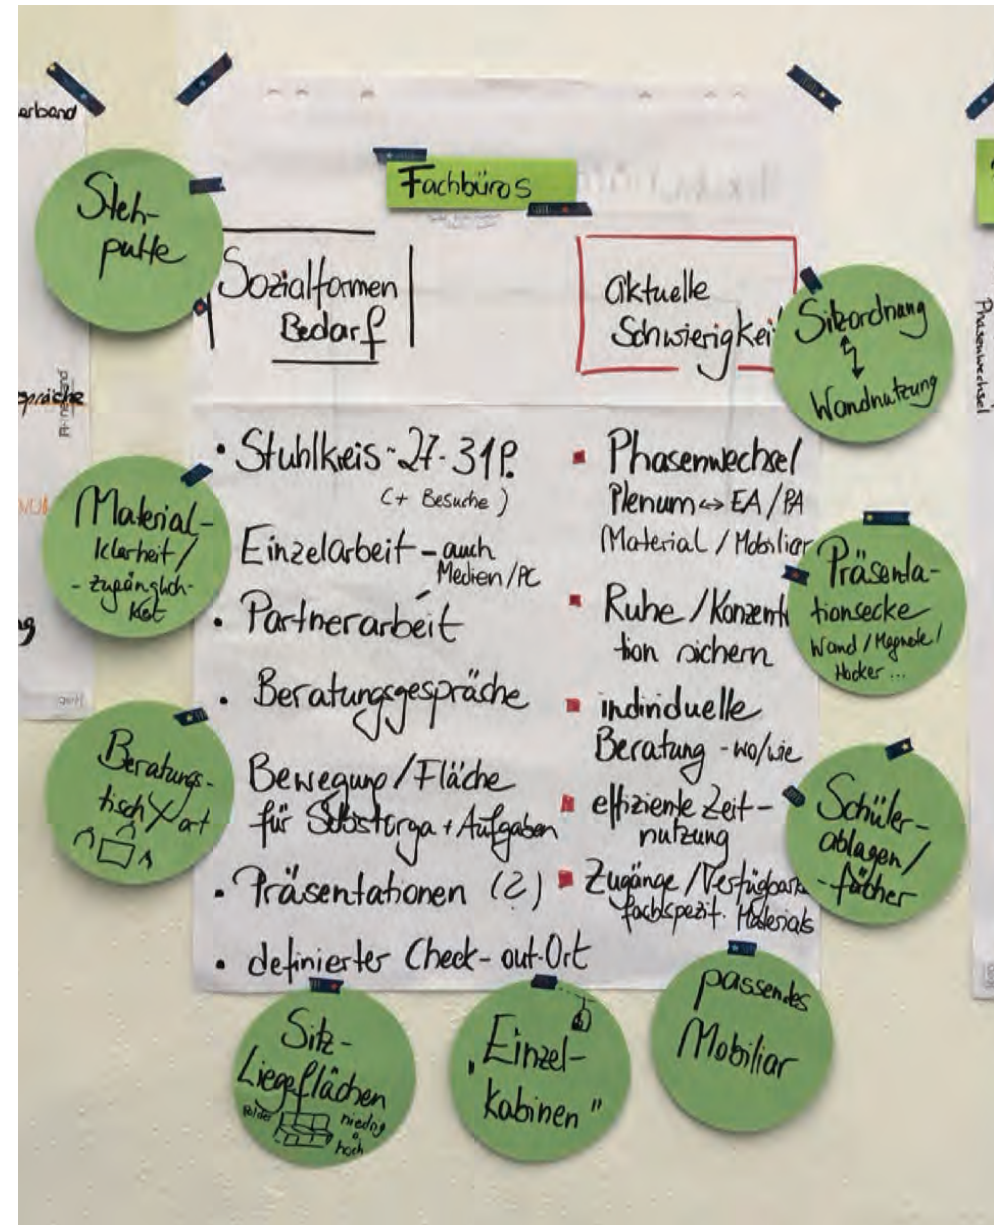 Fachbüros
Sozialformen
Bedarf
• Stuhlkreis - 27-31 P.
(+ Besuche)
Einzelarbeit - auch
Medien/PC
• Partnerarbeit
• Beratungsgespräche
Bewegung/Fläche
für Selbstorga + Aufgaben
• Präsentationen (2)
• definierter Check-out-Ort
aktuelle
Schwierigkei
▪ Phasenwechsel
Plenum ↔ EA/PA
Material / Mobiliar
▪ Ruhe / Konzent
tion sichern
▪ individuelle
Beratung - wo/wie
▪ effiziente Zeit-
nutzung
▪ Zugänge / Verfügbark
fachspezif. Materials
Steh-
pulte
Material-
klarheit/
-zugänglich-
keit
Beratungs-
tisch/ort
Sitz-
Liegeflächen
niedrig
hoch
„Einzel-
kabinen"
passendes
Mobiliar
Sitzordnung
Wandnutzung
Präsenta-
tionsecke
Wand / Magnete /
Hocker ...
Schüler-
ablagen/
-fächer
erband
spräche
Phasenwechsel